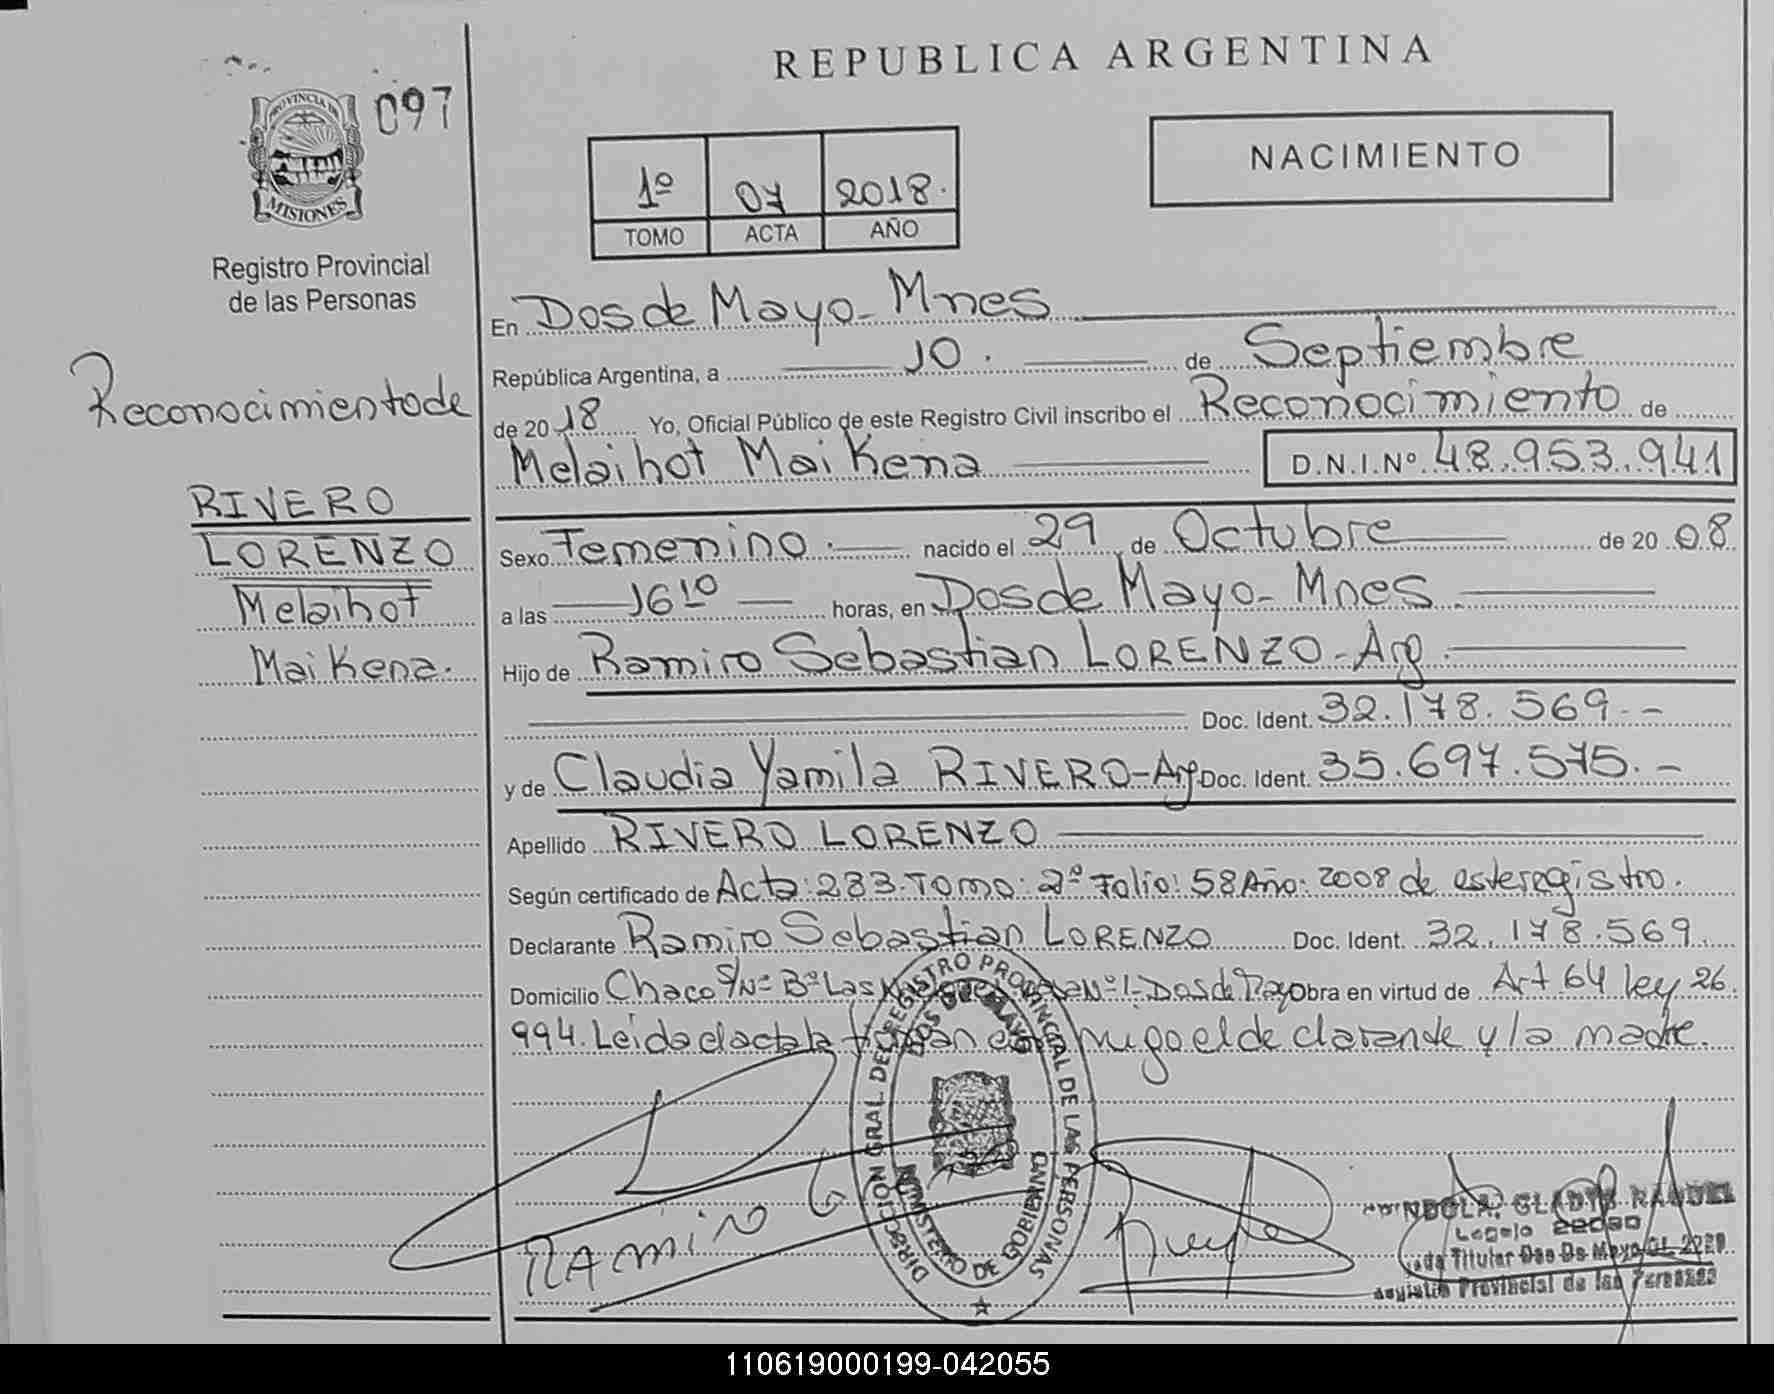 REPUBLICA ARGENTINA
097
PROVINCIA DE
MISIONES
Registro Provincial
de las Personas
1º 07 2018.
TOMO ACTA AÑO
NACIMIENTO
Reconocimiento de
RIVERO
LORENZO
Melaihot
Maikena.
En Dos de Mayo - Mnes
República Argentina, a 10. de Septiembre
de 2018 Yo, Oficial Público de este Registro Civil inscribo el Reconocimiento de
Melaihot Maikena D.N.I.Nº 48.953.941
Sexo Femenino. nacido el 29 de Octubre de 2008
a las 16 10 horas, en Dos de Mayo - Mnes.
Hijo de Ramiro Sebastian LORENZO - Arg.
Doc. Ident. 32.178.569.-
y de Claudia Yamila RIVERO - Arg Doc. Ident. 35.697.575.-
Apellido RIVERO LORENZO
Según certificado de Acta: 283. Tomo: 2º Folio: 58 Año: 2008 de este registro.
Declarante Ramiro Sebastian LORENZO Doc. Ident. 32.178.569.
Domicilio Chaco S/Nº Bº Las Nº 1 - Dos de Mayo Obra en virtud de Art 64 ley 26.
994. Leida el acta la firman conmigo el declarante y la madre.
DIRECCION GRAL DEL REGISTRO PROVINCIAL DE LAS PERSONAS
DOS DE MAYO
MINISTERIO DE GOBIERNO
RAmiro
GLADYS RAQUEL
Legajo
Titular Dos De Mayo
Registro Provincial de las Personas
110619000199-042055